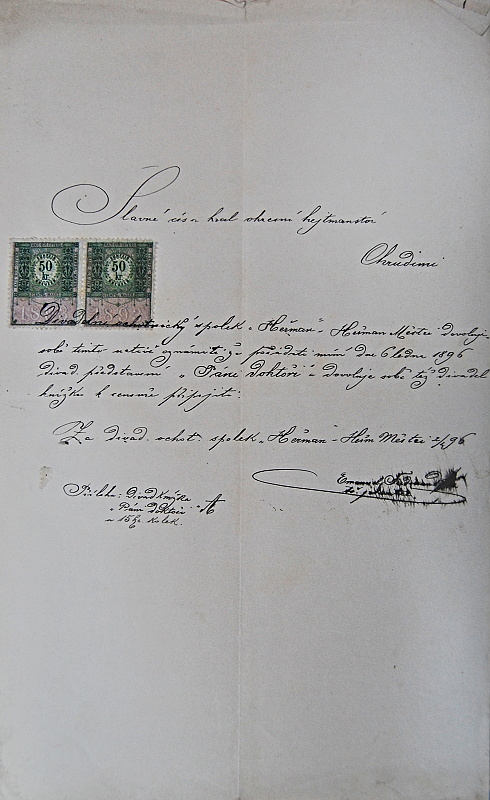 Slavné cís. a král okresní hejtmanství
Chrudimi
50
kr
50
kr
Divadelní ochotnický spolek „Heřman“ Heřman Městec dovoluje
sobě tímto uctivě oznámiti, že pořádati míní dne 6 ledna 1896
divad. představení „Páni doktoři“ a dovoluje sobě též divadel.
knížku k censuře připojiti.
Za divad. ochot. spolek „Heřman“ Heřm Městec 2/1 96
Příloha: divad knížka
„Páni doktoři“
a 15 kr. kolek.
Emanuel